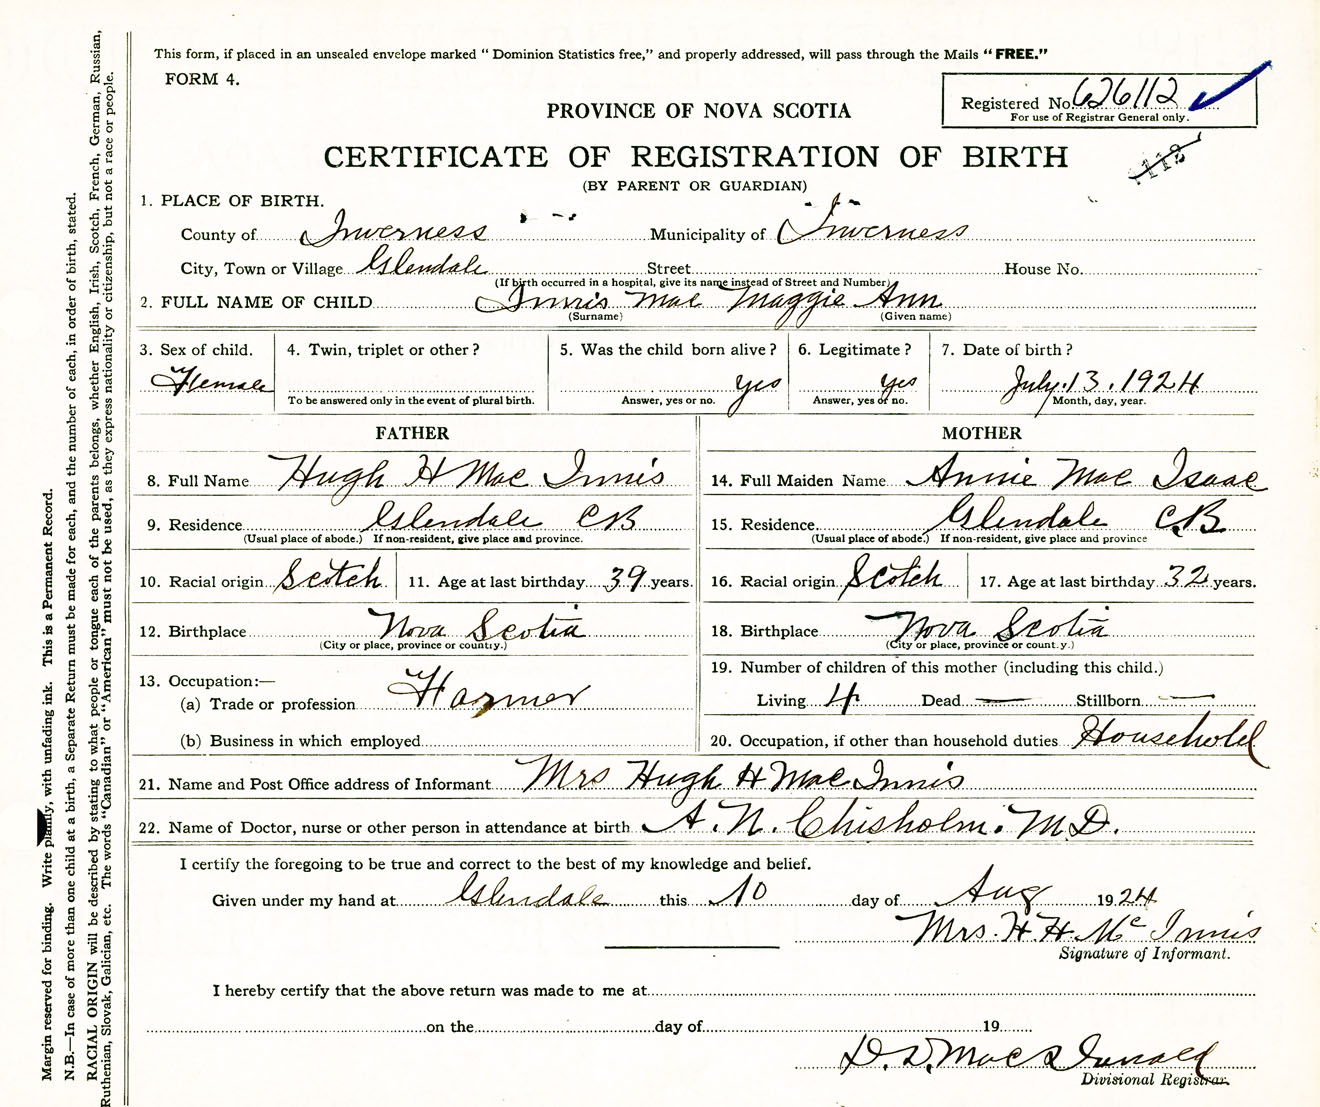 This form, if placed in an unsealed envelope marked "Dominion Statistics free," and properly addressed, will pass through the Mails "FREE."
FORM 4.
Registered No. 626112
For use of Registrar General only.
PROVINCE OF NOVA SCOTIA
CERTIFICATE OF REGISTRATION OF BIRTH
(BY PARENT OR GUARDIAN)
1. PLACE OF BIRTH.
County of Inverness Municipality of Inverness
City, Town or Village Glendale Street House No.
(If birth occurred in a hospital, give its name instead of Street and Number)
2. FULL NAME OF CHILD Innis Mac Maggie Ann
(Surname) (Given name)
3. Sex of child. 4. Twin, triplet or other? 5. Was the child born alive? 6. Legitimate? 7. Date of birth?
Female yes yes July. 13. 1924
To be answered only in the event of plural birth. Answer, yes or no. Answer, yes or no. Month, day, year.
FATHER MOTHER
8. Full Name Hugh H Mac Innis 14. Full Maiden Name Annie Mac Isaac
9. Residence Glendale CB 15. Residence. Glendale C.B
(Usual place of abode.) If non-resident, give place and province. (Usual place of abode.) If non-resident, give place and province
10. Racial origin Scotch 11. Age at last birthday 39 years. 16. Racial origin Scotch 17. Age at last birthday 32 years.
12. Birthplace Nova Scotia 18. Birthplace Nova Scotia
(City or place, province or country.) (City or place, province or country.)
19. Number of children of this mother (including this child.)
13. Occupation:—
(a) Trade or profession Farmer Living 4 Dead — Stillborn —
(b) Business in which employed 20. Occupation, if other than household duties Household
21. Name and Post Office address of Informant Mrs Hugh H Mac Innis
22. Name of Doctor, nurse or other person in attendance at birth A. N. Chisholm. M.D.
I certify the foregoing to be true and correct to the best of my knowledge and belief.
Given under my hand at Glendale this 10 day of Aug 1924
Mrs. H. H. Mc Innis
Signature of Informant.
I hereby certify that the above return was made to me at
on the day of 19
D. D. MacDonald
Divisional Registrar.
Margin reserved for binding. Write plainly, with unfading ink. This is a Permanent Record.
N.B.—In case of more than one child at a birth, a Separate Return must be made for each, and the number of each, in order of birth, stated.
RACIAL ORIGIN will be described by stating to what people or tongue each of the parents belongs, whether English, Irish, Scotch, French, German, Russian,
Ruthenian, Slovak, Galician, etc. The words "Canadian" or "American" must not be used, as they express nationality or citizenship, but not a race or people.